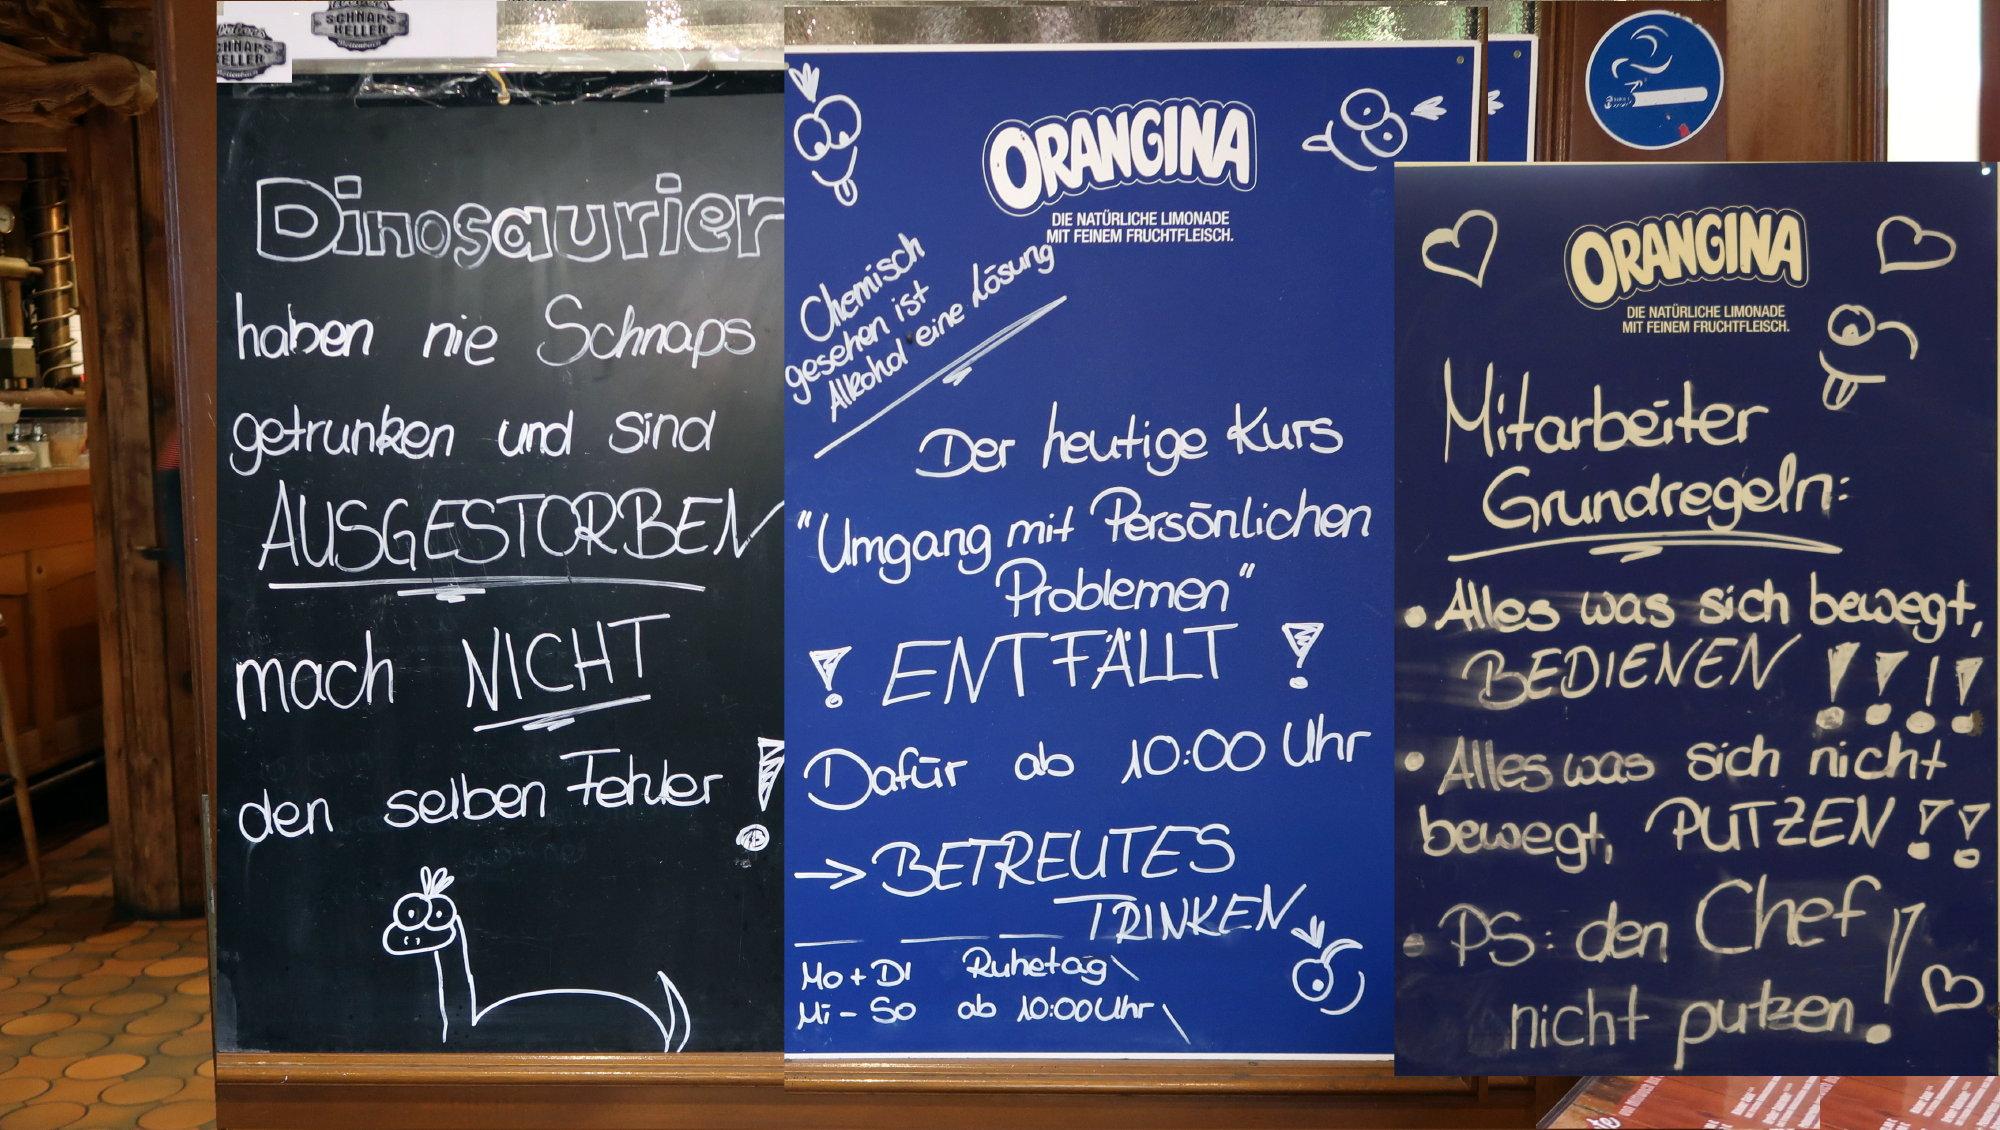 SCHNAPS
KELLER
SCHNAPS
KELLER
Dinosaurier
haben nie Schnaps
getrunken und sind
AUSGESTORBEN
mach NICHT
den selben Fehler!
ORANGINA
DIE NATÜRLICHE LIMONADE
MIT FEINEM FRUCHTFLEISCH.
Chemisch
gesehen ist
Alkohol eine Lösung
Der heutige Kurs
"Umgang mit Persönlichen
Problemen"
! ENTFÄLLT !
Dafür ab 10:00 Uhr
→ BETREUTES
TRINKEN
Mo + Di Ruhetag
Mi - So ab 10:00 Uhr
ORANGINA
DIE NATÜRLICHE LIMONADE
MIT FEINEM FRUCHTFLEISCH.
Mitarbeiter
Grundregeln:
• Alles was sich bewegt,
BEDIENEN !!!!
• Alles was sich nicht
bewegt, PUTZEN !!
• PS: den Chef
nicht putzen!